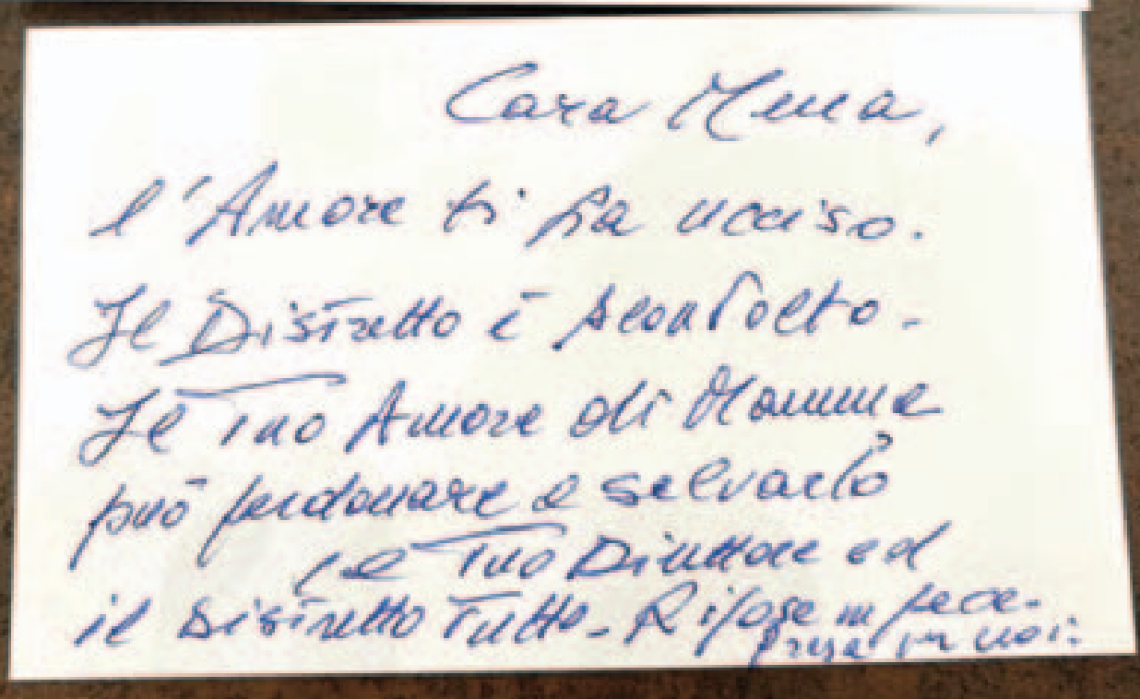 Cara Mena,
l'Amore ti ha ucciso.
Il Distretto è sconvolto.
Il Tuo Amore di Mamma
può perdonare e salvarlo
Il Tuo Direttore ed
il Distretto Tutto. Riposa in pace.